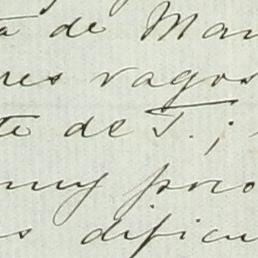 a de Man
res vagos
te de T.;
muy poco
s dificu